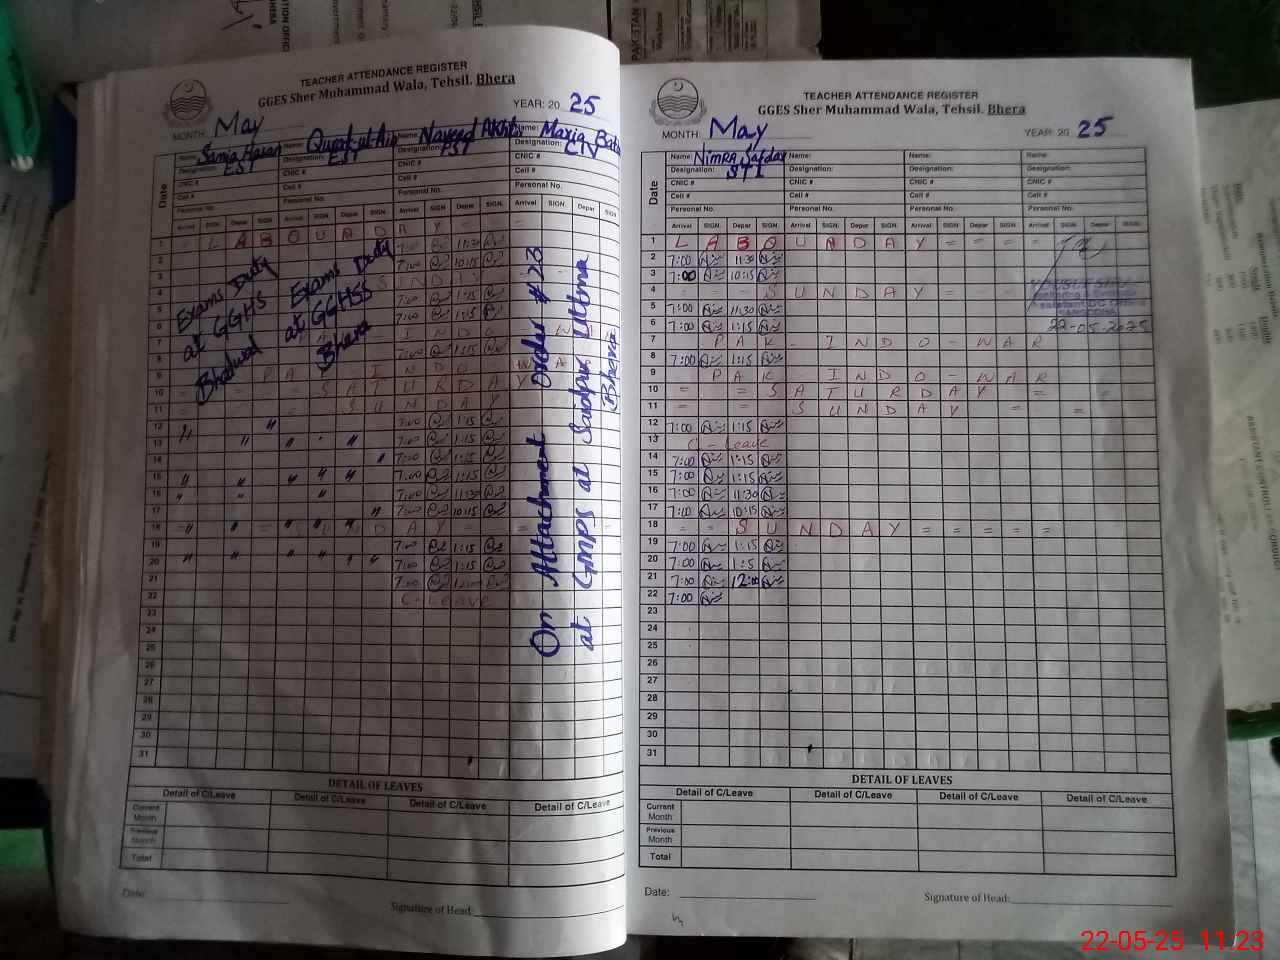 TEACHER ATTENDANCE REGISTER
GGES Sher Muhammad Wala, Tehsil. Bhera
MONTH: May YEAR: 20 25
Name: Samia Hasan Name: Qurat-ul-Ain Name: Naveed Akhtar Name: Maria Batool
Designation: EST Designation: EST Designation: PST Designation: CTV
CNIC # CNIC # CNIC # CNIC #
Cell # Cell # Cell # Cell #
Personal No. Personal No. Personal No. Personal No.
Date Arrival SIGN. Depar SIGN. Arrival SIGN. Depar SIGN. Arrival SIGN. Depar SIGN. Arrival SIGN. Depar SIGN.
1 LABOUR DAY
2 7:00 11:30
3 7:00 10:15
4 SUNDAY
5 7:00 1:15
6 7:00 1:15
7 INDO WAR
8 7:00 1:15
9 PAK INDO WAR
10 SATURDAY
11 SUNDAY
12 7:00 1:15
13 7:00 1:15
14 7:00 1:15
15 7:00 1:15
16 7:00 11:30
17 7:00 10:15
18 SUNDAY
19 7:00 1:15
20 7:00 1:15
21 7:00 12:00
22 C-Leave
23
24
25
26
27
28
29
30
31
Exams Duty
at GGHS
Bhalwal
Exams Duty
at GGHSS
Bhera
On Attachment Order #23
at GMPS at Saidpur Uttma
Bhera
DETAIL OF LEAVES
Detail of C/Leave Detail of C/Leave Detail of C/Leave Detail of C/Leave
Current Month
Previous Month
Total
Date:
Signature of Head:
TEACHER ATTENDANCE REGISTER
GGES Sher Muhammad Wala, Tehsil. Bhera
MONTH: May YEAR: 20 25
Name: Nimra Safdar Name: Name: Name:
Designation: STI Designation: Designation: Designation:
CNIC # CNIC # CNIC # CNIC #
Cell # Cell # Cell # Cell #
Personal No. Personal No. Personal No. Personal No.
Date Arrival SIGN. Depar SIGN. Arrival SIGN. Depar SIGN. Arrival SIGN. Depar SIGN. Arrival SIGN. Depar SIGN.
1 LABOUADAY = = =
2 7:00 11:30
3 7:00 10:15
4 SUNDAY
5 7:00 11:30
6 7:00 1:15
22-05-2025
7 PAK - INDO - WAR
8 7:00 1:15
9 PAK - INDO - WAR
10 = = SATURDAY = =
11 = = SUNDAY = =
12 7:00 1:15
13 C-Leave
14 7:00 1:15
15 7:00 1:15
16 7:00 11:30
17 7:00 10:15
18 = = SUNDAY = = = = =
19 7:00 1:15
20 7:00 1:5
21 7:00 12:00
22 7:00
23
24
25
26
27
28
29
30
31
DETAIL OF LEAVES
Detail of C/Leave Detail of C/Leave Detail of C/Leave Detail of C/Leave
Current Month
Previous Month
Total
Date:
Signature of Head:
22-05-25 11:23